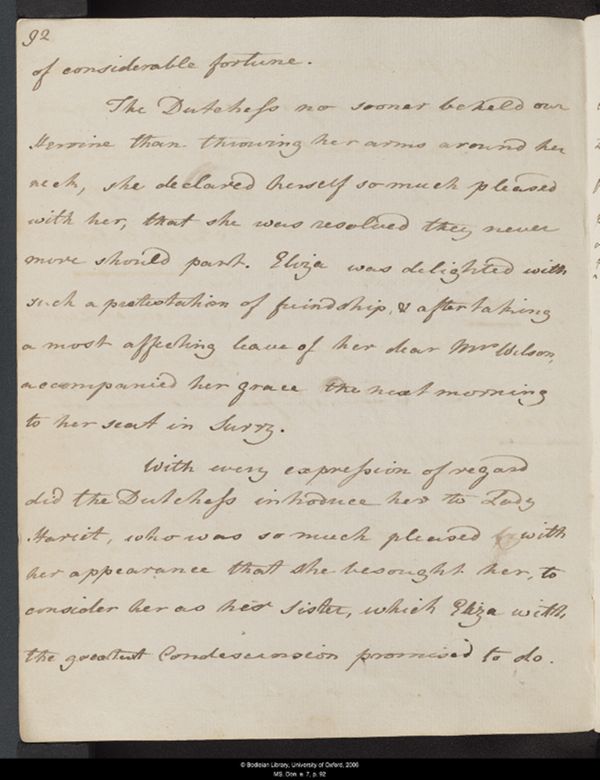 92
of considerable fortune.
The Dutchess no sooner beheld our
Heroine than throwing her arms around her
neck, she declared herself so much pleased
with her, that she was resolved they never
more should part. Eliza was delighted with
such a protestation of freindship, & after taking
a most affecting leave of her dear Mrs Wilson,
accompanied her grace the next morning
to her seat in Surry.
With every expression of regard
did the Dutchess introduce her to Lady
Hariet, who was so much pleased with
her appearance that she besought her, to
consider her as her Sister, which Eliza with
the greatest Condescension promised to do.
© Bodleian Library, University of Oxford, 2006
MS. Don. e. 7, p. 92